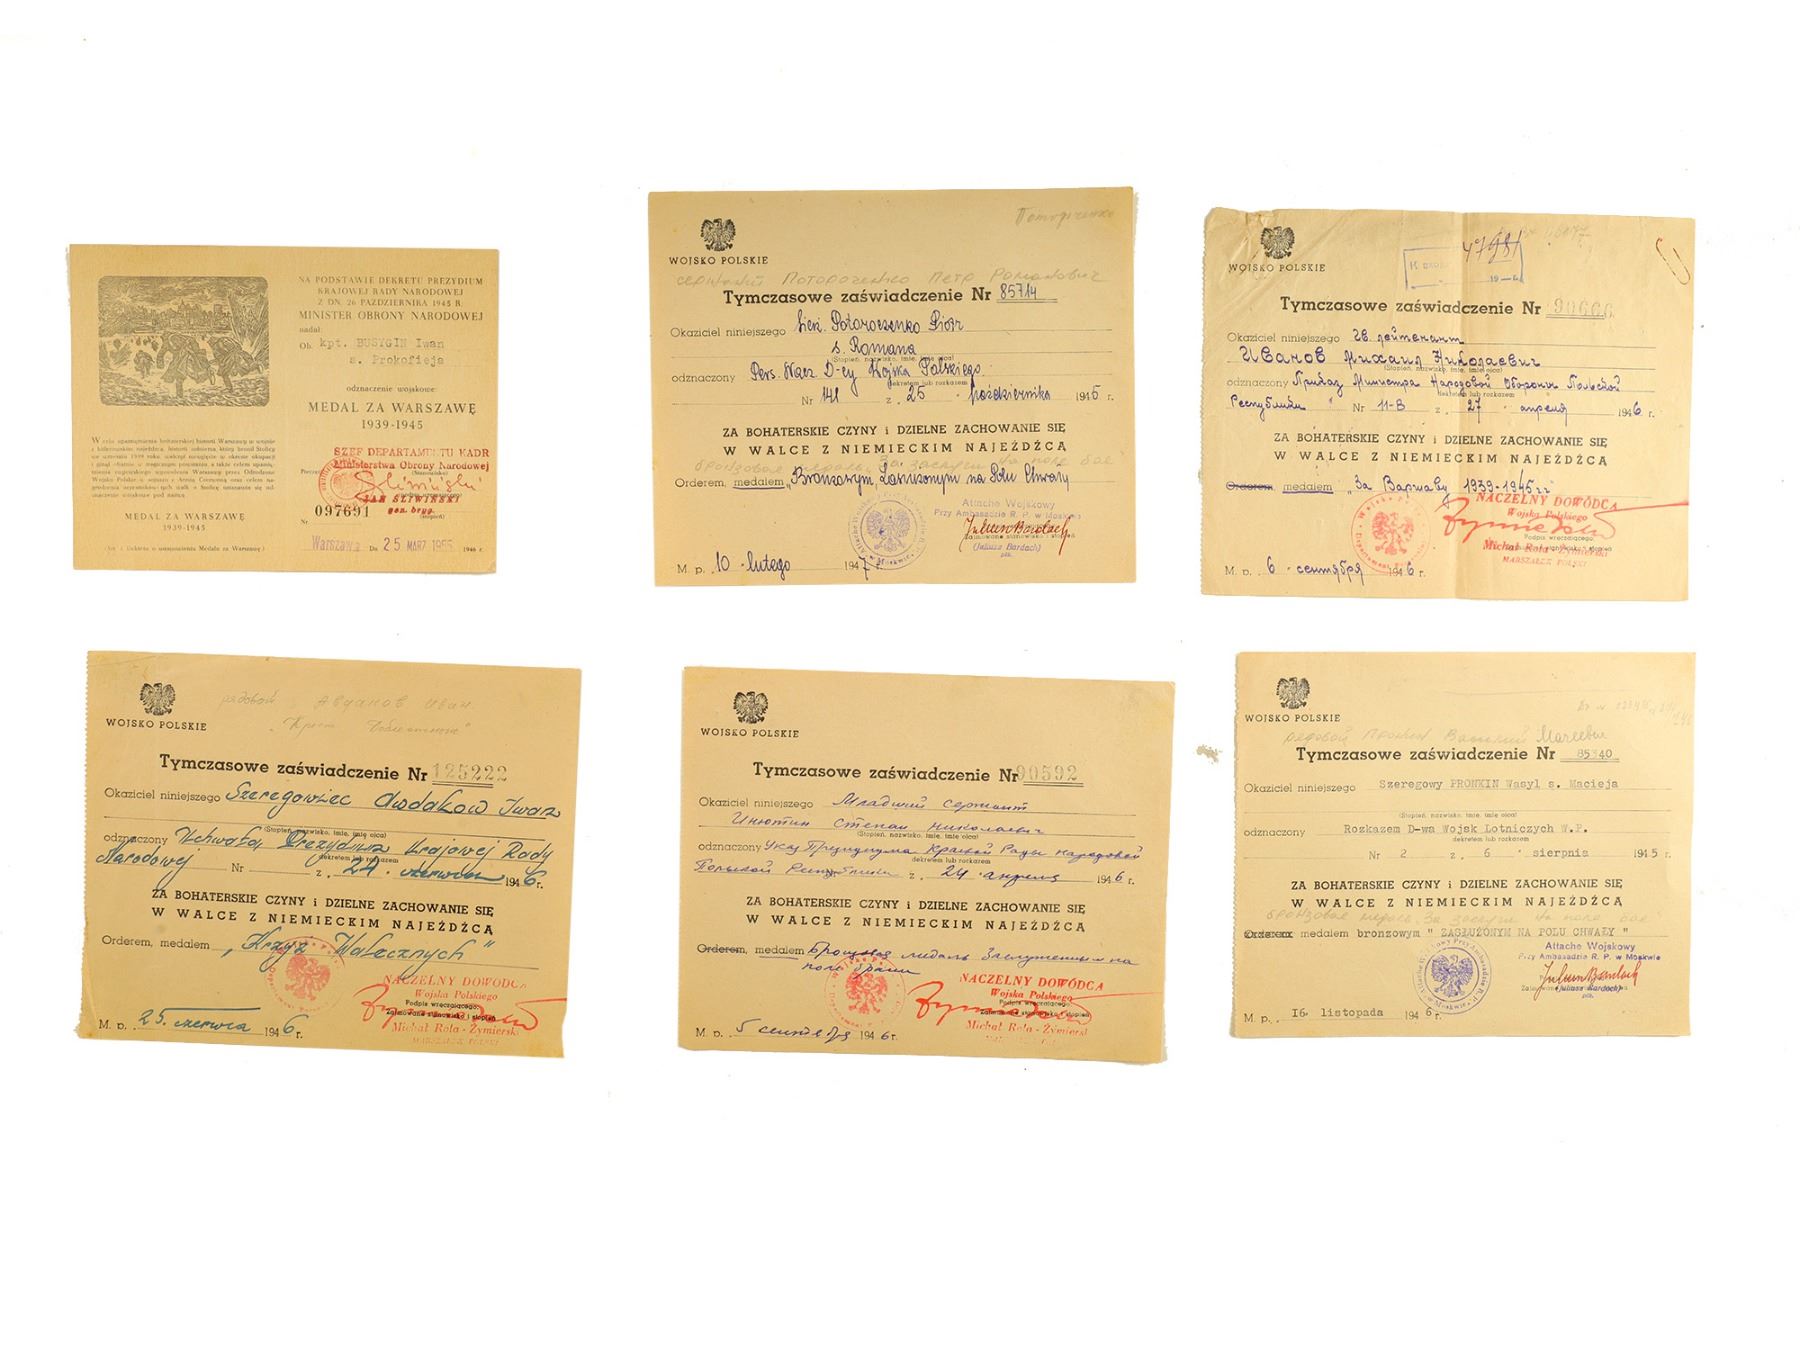 NA PODSTAWIE DEKRETU PREZYDIUM
KRAJOWEJ RADY NARODOWEJ
Z DN. 26 PAŹDZIERNIKA 1945 R.
MINISTER OBRONY NARODOWEJ
nadał:
Ob. kpt. BUSYGIN Iwan
s. Prokofieja
odznaczenie wojskowe:
MEDAL ZA WARSZAWĘ
1939-1945
SZEF DEPARTAMENTU KADR
Ministerstwa Obrony Narodowej
JAN ŚLIWIŃSKI
gen. bryg.
Nr 097691
Warszawa Dn 25 MARZ 1955 1946 r.
MEDAL ZA WARSZAWĘ
1939-1945
Поторченко
WOJSKO POLSKIE
сержант Потороченко Петр Романович
Tymczasowe zaświadczenie Nr 85714
Okaziciel niniejszego Sierż. Potoroczenko Piotr
s. Romana
(Stopień, nazwisko, imię, imię ojca)
odznaczony Pers. Nacz. D-cy Wojska Polskiego
dekretem lub rozkazem
Nr 141 z. 25 października 1945 r.
ZA BOHATERSKIE CZYNY i DZIELNE ZACHOWANIE SIĘ
W WALCE Z NIEMIECKIM NAJEŹDŹCĄ
бронзовая медаль За заслуги на поле боя
Orderem, medalem „Bronzowym, Zasłużonym na Polu Chwały
Attache Wojskowy
Przy Ambasadzie R. P. w Moskwie
Zajmowane stanowisko i stopień
(Juliusz Bardach)
płk.
M. p. 10 lutego 1947 r.
47981
WOJSKO POLSKIE
Tymczasowe zaświadczenie Nr 90666
Okaziciel niniejszego Гв. лейтенант
Иванов Михаил Николаевич
(Stopień, nazwisko, imię, imię ojca)
odznaczony Приказ Министра Народовой Обороны Польской
dekretem lub rozkazem
Республики Nr 11-В z. 27 апреля 1946 r.
ZA BOHATERSKIE CZYNY i DZIELNE ZACHOWANIE SIĘ
W WALCE Z NIEMIECKIM NAJEŹDŹCĄ
Orderem, medalem „За Варшаву 1939-1945 гг"
NACZELNY DOWÓDCA
Wojska Polskiego
Podpis wręczającego
Zajmowane stanowisko i stopień
Michał Rola-Żymierski
MARSZAŁEK POLSKI
M. p. 6 сентября 1946 r.
рядовой Авдаков Иван
WOJSKO POLSKIE
Tymczasowe zaświadczenie Nr 125222
Okaziciel niniejszego Szeregowiec Awdakow Iwan
(Stopień, nazwisko, imię, imię ojca)
odznaczony Uchwałą Prezydium Krajowej Rady
dekretem lub rozkazem
Narodowej Nr z. 24 czerwca 1946 r.
ZA BOHATERSKIE CZYNY i DZIELNE ZACHOWANIE SIĘ
W WALCE Z NIEMIECKIM NAJEŹDŹCĄ
Orderem, medalem „Krzyż Walecznych"
NACZELNY DOWÓDCA
Wojska Polskiego
Podpis wręczającego
Zajmowane stanowisko i stopień
Michał Rola-Żymierski
MARSZAŁEK POLSKI
M. p. 25 czerwca 1946 r.
WOJSKO POLSKIE
Tymczasowe zaświadczenie Nr 90592
Okaziciel niniejszego Младший сержант
Инютин Степан Николаевич
(Stopień, nazwisko, imię, imię ojca)
odznaczony Указ Президиума Краевой Рады народовой
dekretem lub rozkazem
Польской Республики z. 24 апреля 1946 r.
ZA BOHATERSKIE CZYNY i DZIELNE ZACHOWANIE SIĘ
W WALCE Z NIEMIECKIM NAJEŹDŹCĄ
Orderem, medalem Бронзовая медаль Заслуженным на
поле брани
NACZELNY DOWÓDCA
Wojska Polskiego
Podpis wręczającego
Zajmowane stanowisko i stopień
Michał Rola-Żymierski
M. p. 5 сентября 1946 r.
WOJSKO POLSKIE
рядовой Пронкин Василий Матеевич
Tymczasowe zaświadczenie Nr 85340
Okaziciel niniejszego Szeregowy PRONKIN Wasyl s. Macieja
(Stopień, nazwisko, imię, imię ojca)
odznaczony Rozkazem D-wa Wojsk Lotniczych W.P.
dekretem lub rozkazem
Nr 2 z. 6 sierpnia 1945 r.
ZA BOHATERSKIE CZYNY i DZIELNE ZACHOWANIE SIĘ
W WALCE Z NIEMIECKIM NAJEŹDŹCĄ
бронзовая медаль За заслуги на поле боя
Orderem medalem bronzowym " ZASŁUŻONYM NA POLU CHWAŁY "
Attache Wojskowy
Przy Ambasadzie R. P. w Moskwie
(Juliusz Bardach)
płk.
M. p. 16 listopada 1946 r.